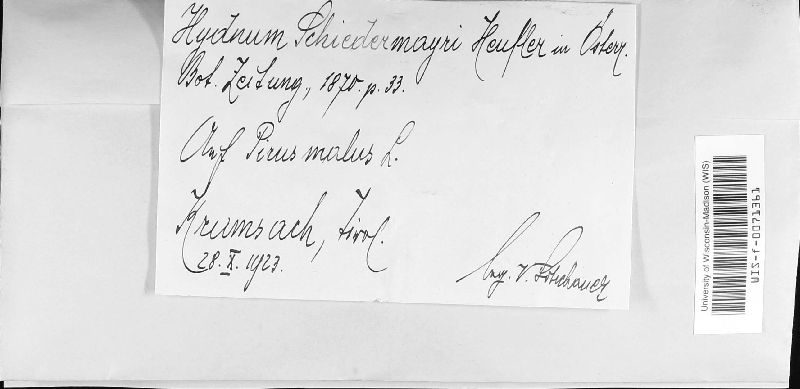 Hydnum Schiedermayri Heufler in Österr.
Bot. Zeitung, 1870. p. 33.
Auf Pirus malus L.
Krumsach, Tirol.
28. X. 1923.
V.
University of Wisconsin-Madison (WIS)
WIS-f-0071361